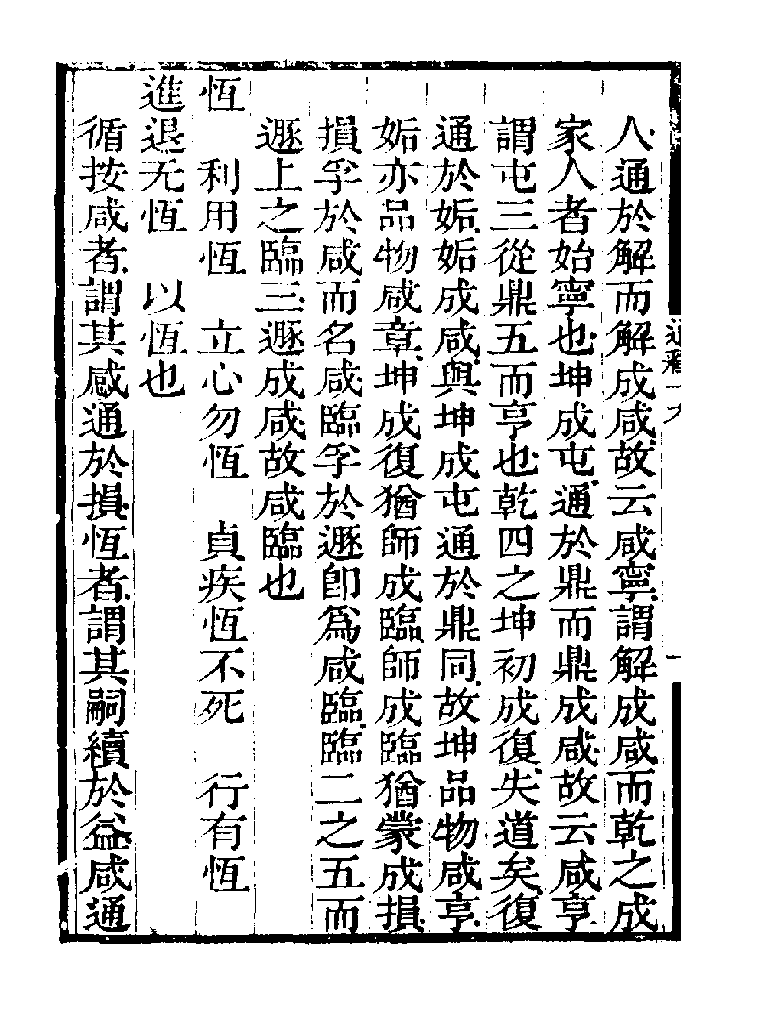 人通於解而解成咸故云咸寧謂解成咸而乾之成
家人者始寧也坤成屯通於鼎而鼎成咸故云咸亨
謂屯三從鼎五而亨也乾四之坤初成復失道矣復
通於姤姤成咸與坤成屯通於鼎同故坤品物咸亨
姤亦品物咸章坤成復猶師成臨師成臨猶蒙成損
損孚於咸而名咸臨孚於遯卽爲咸臨臨二之五而
遯上之臨三遯成咸故咸臨也
恆　利用恆　立心勿恆　貞疾恆不死　行有恆
進退无恆　以恆也
循按咸者謂其感通於損恆者謂其嗣續於益咸通
通釋一